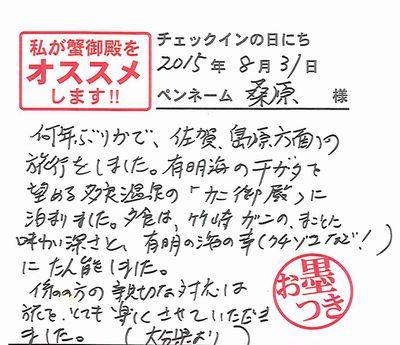 私が蟹御殿を
オススメ
します!!
チェックインの日にち
2015年 8月 31日
ペンネーム 桑原 様
何年ぶりかで、佐賀、島原方面の
旅行をしました。有明海の干ガタを
望める 温泉の「カニ御殿」に
泊まりました。夕食は、竹崎ガニの、まことに
味わい深さと、有明の海の幸(クチゾコなど!)
にたん能しました。
係の方の親切な対応は
旅を、とても楽しくさせていただき
ました。 (大分県より)
お墨つき